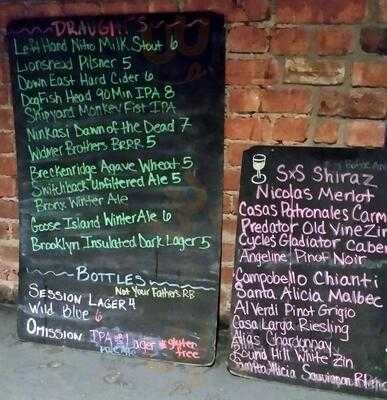 DRAUGHTS
Left Hand Nitro Milk Stout 6
Lionshead Pilsner 5
Down East Hard Cider 6
Dogfish Head 90 Min IPA 8
Shipyard Monkey Fist IPA
Ninkasi Dawn of the Dead 7
Widmer Brothers BRRR 5
Breckenridge Agave Wheat 5
Switchback Unfiltered Ale 5
Bronx Winter Ale
Goose Island Winter Ale 6
Brooklyn Insulated Dark Lager 5
BOTTLES
Not Your Father's RB
SESSION LAGER 4
Wild Blue 6
OMISSION IPA & Lager *gluten free
Pale Ale
SxS Shiraz
Nicolas Merlot
Casas Patronales Carm
Predator Old Vine Zin
Cycles Gladiator Caber
Angeline Pinot Noir
Campobello Chianti
Santa Alicia Malbec
Al Verdi Pinot Grigio
Casa Larga Riesling
Alias Chardonnay
Round Hill White Zin
Santa Alicia Sauvignon Bl